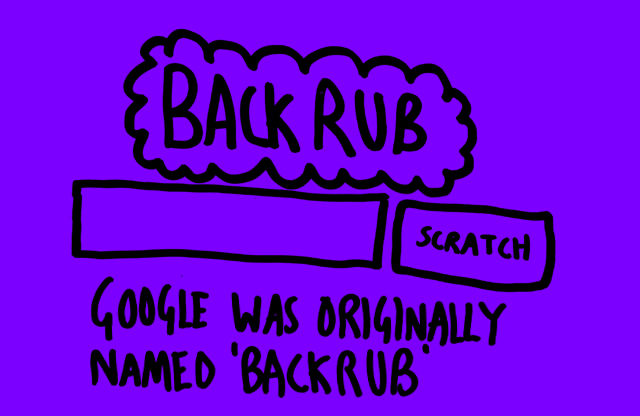 BACKRUB
SCRATCH
GOOGLE WAS ORIGINALLY
NAMED 'BACKRUB'